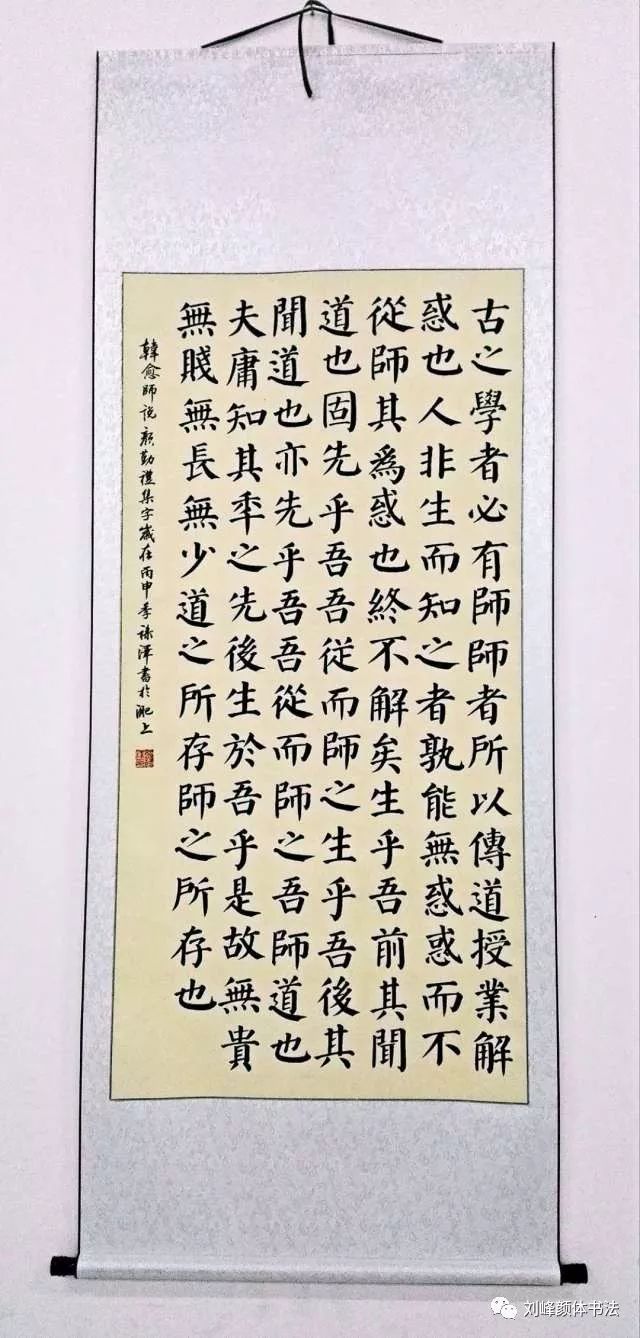 古之學者必有師師者所以傳道授業解
惑也人非生而知之者孰能無惑惑而不
從師其為惑也終不解矣生乎吾前其聞
道也固先乎吾吾從而師之生乎吾後其
聞道也亦先乎吾吾從而師之吾師道也
夫庸知其年之先後生於吾乎是故無貴
無賤無長無少道之所存師之所存也
韓愈師說 顏勤禮集字歲在丙申季 書於淝上
刘峰颜体书法